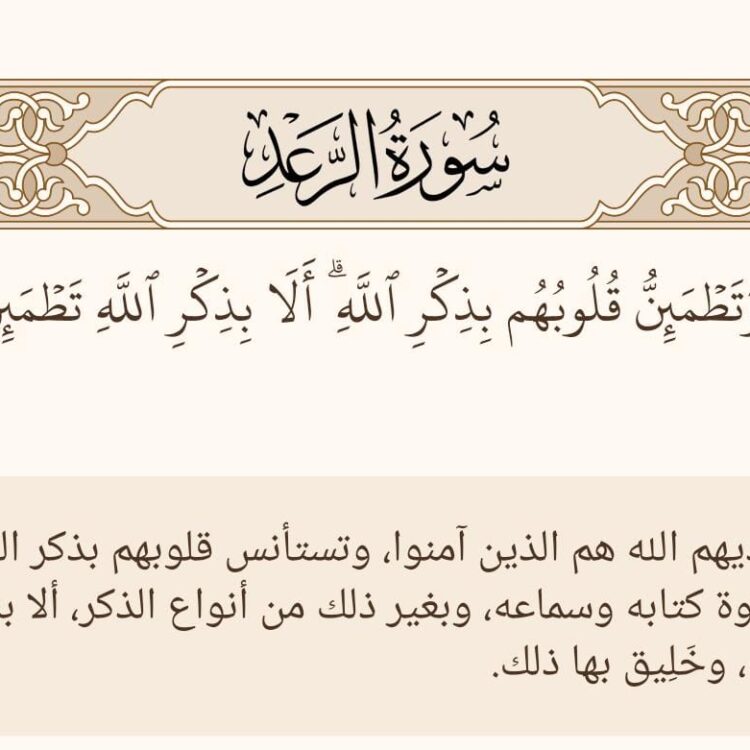 سُورَةُ الرَّعْدِ
قُلُوبُهُم بِذِكْرِ ٱللَّهِ ۗ أَلَا بِذِكْرِ ٱللَّهِ
الله هم الذين آمنوا، وتستأنس قلوبهم بذكر
كتابه وسماعه، وبغير ذلك من أنواع الذكر، ألا
، وخَلِيق بها ذلك.